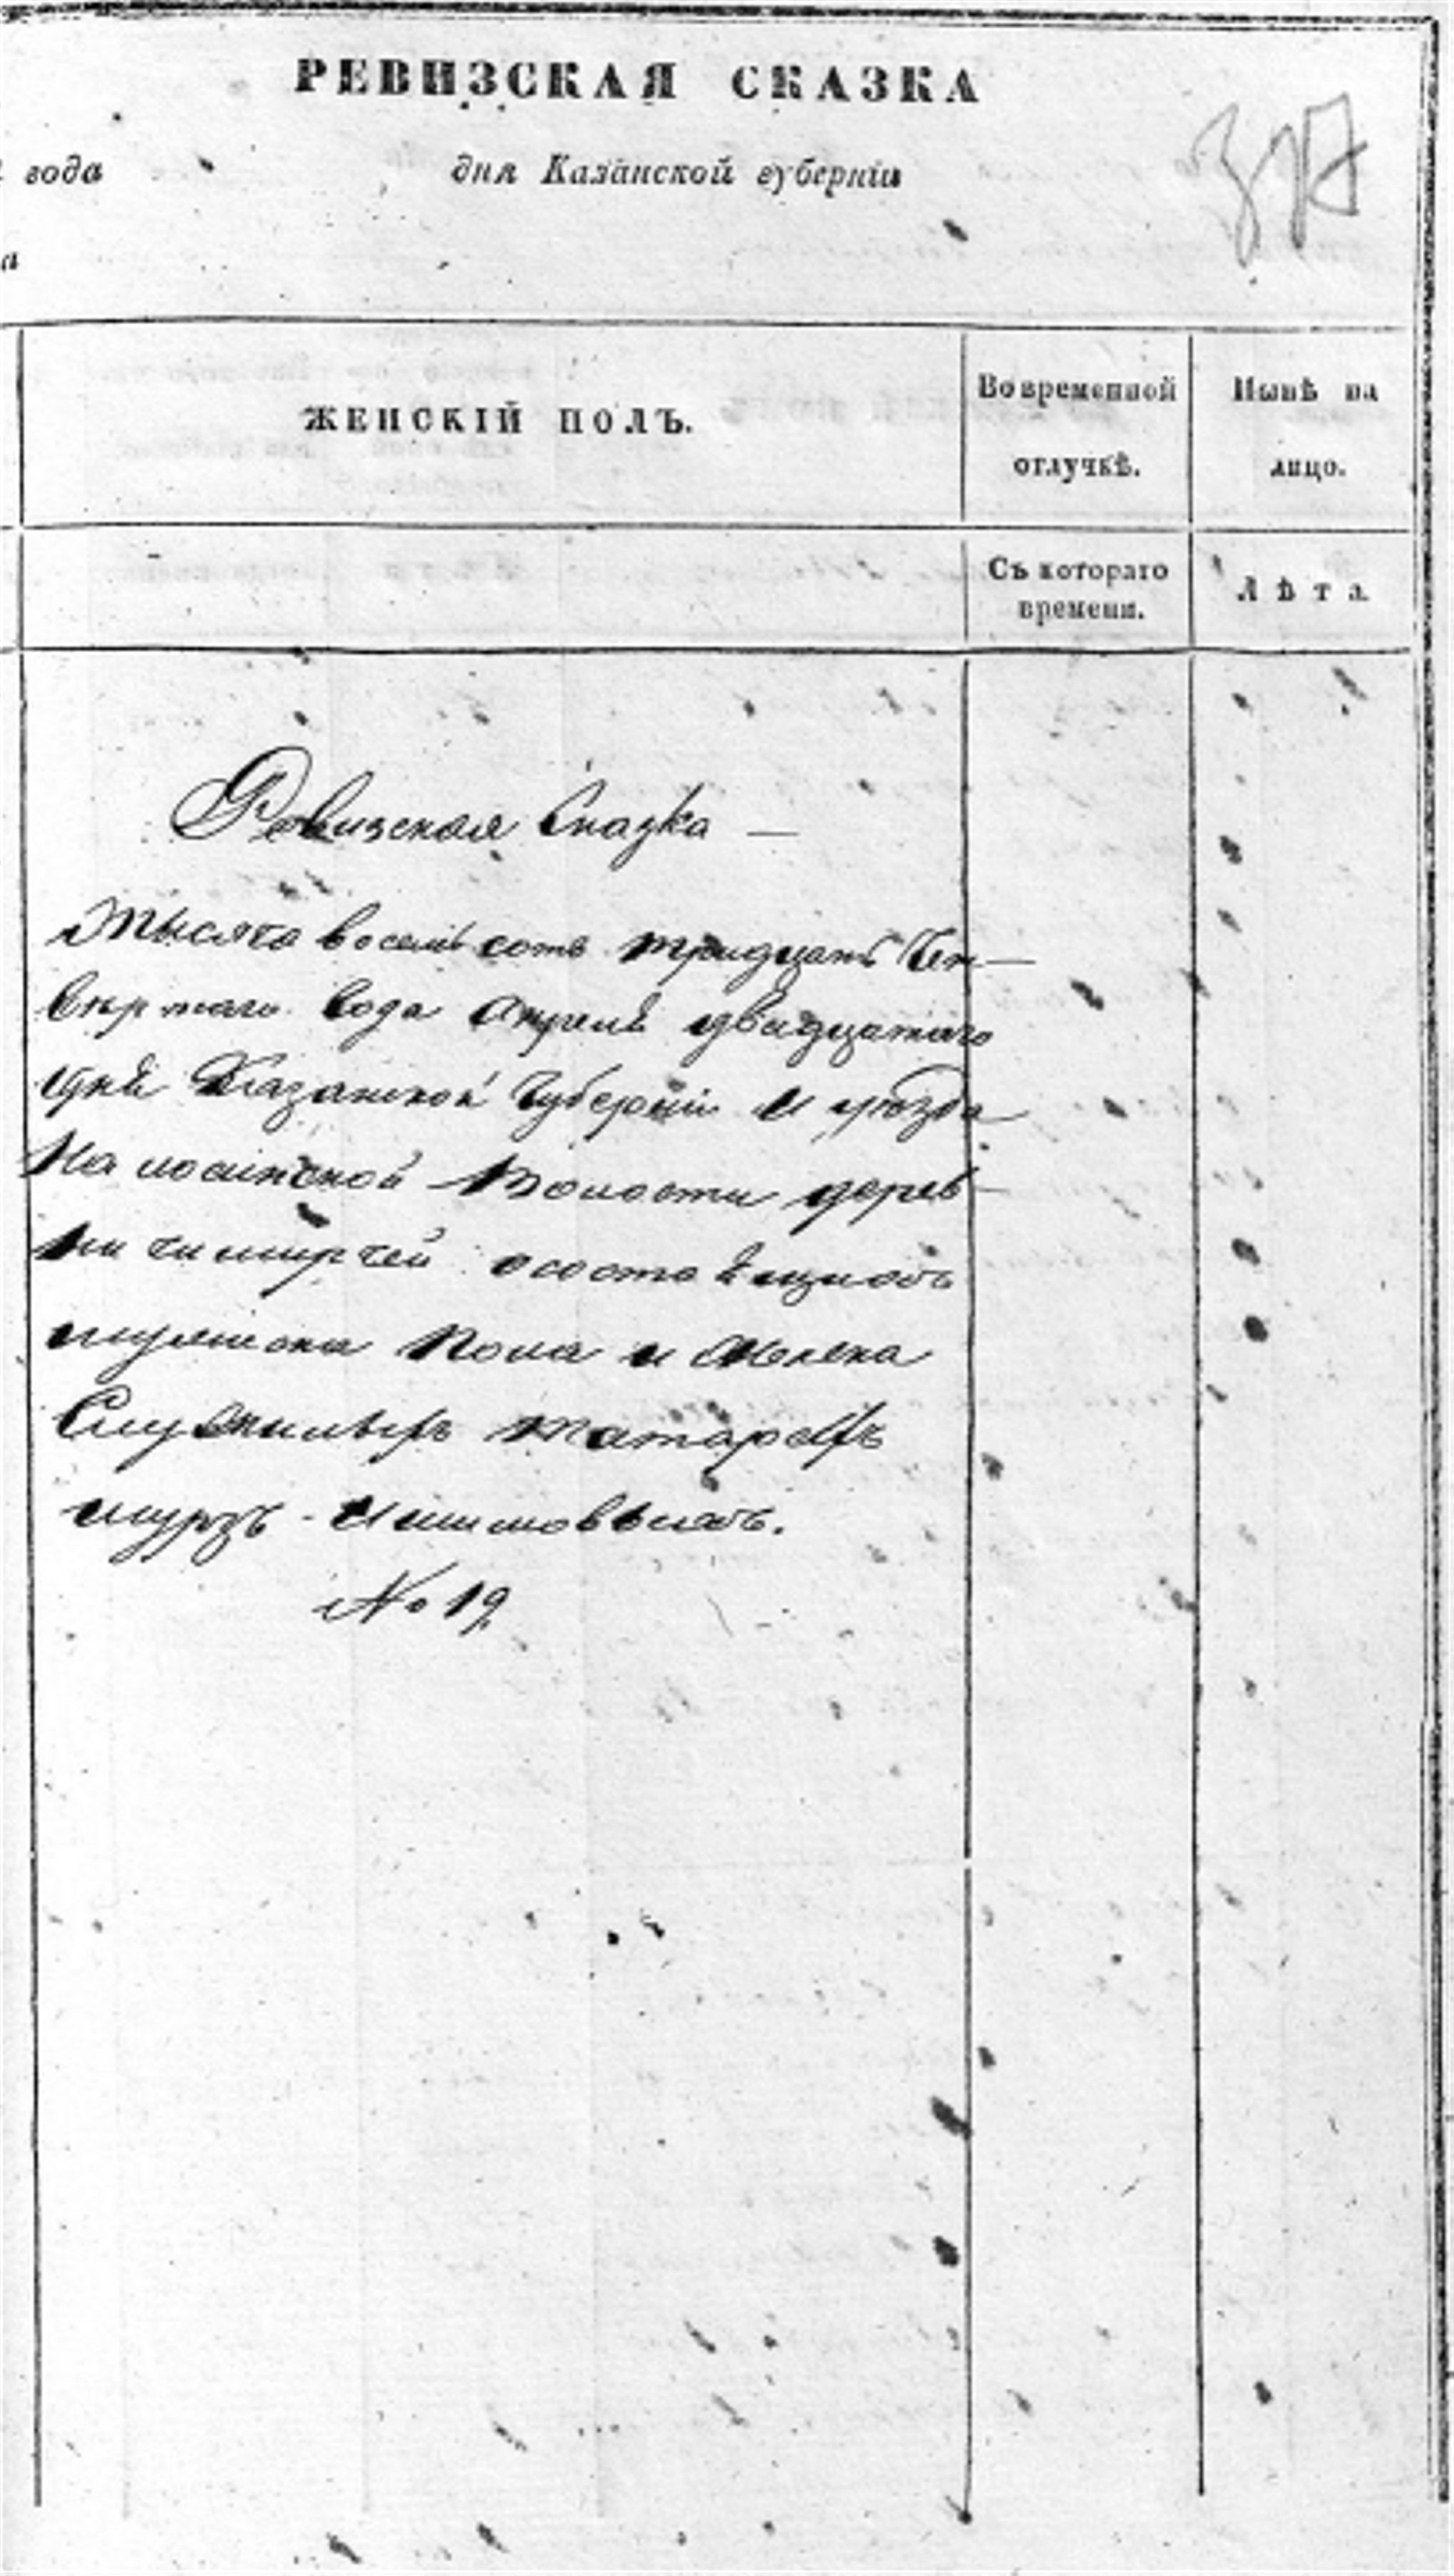 РЕВИЗСКАЯ СКАЗКА
года дня Казанской губерніи
377
а
ЖЕНСКІЙ ПОЛЪ.
Во временной отлучкѣ.
Нынѣ на лицо.
Съ котораго времени.
Лѣта.
Ревизская Сказка —
Тысяча восемь сотъ тридцать Чет—
вертаго года Апреля двадцатаго
дня Казанской Губерніи И уѣзда
Волости дерев—
ни чимирчей осостоящихъ
мужеска Пола и Женска
Служилыхъ татаръ
мурзъ Ишимовыхъ.
№ 19